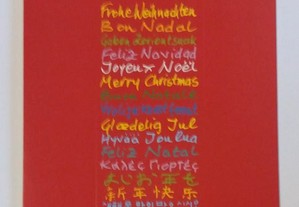 Frohe Weihnachten
Bon Nadal
Feliz Navidad
Joyeux Noël
Merry Christmas
Glædelig Jul
Hyvää Joulua
Feliz Natal
Καλές Γιορτές
よいお年を
新年快乐